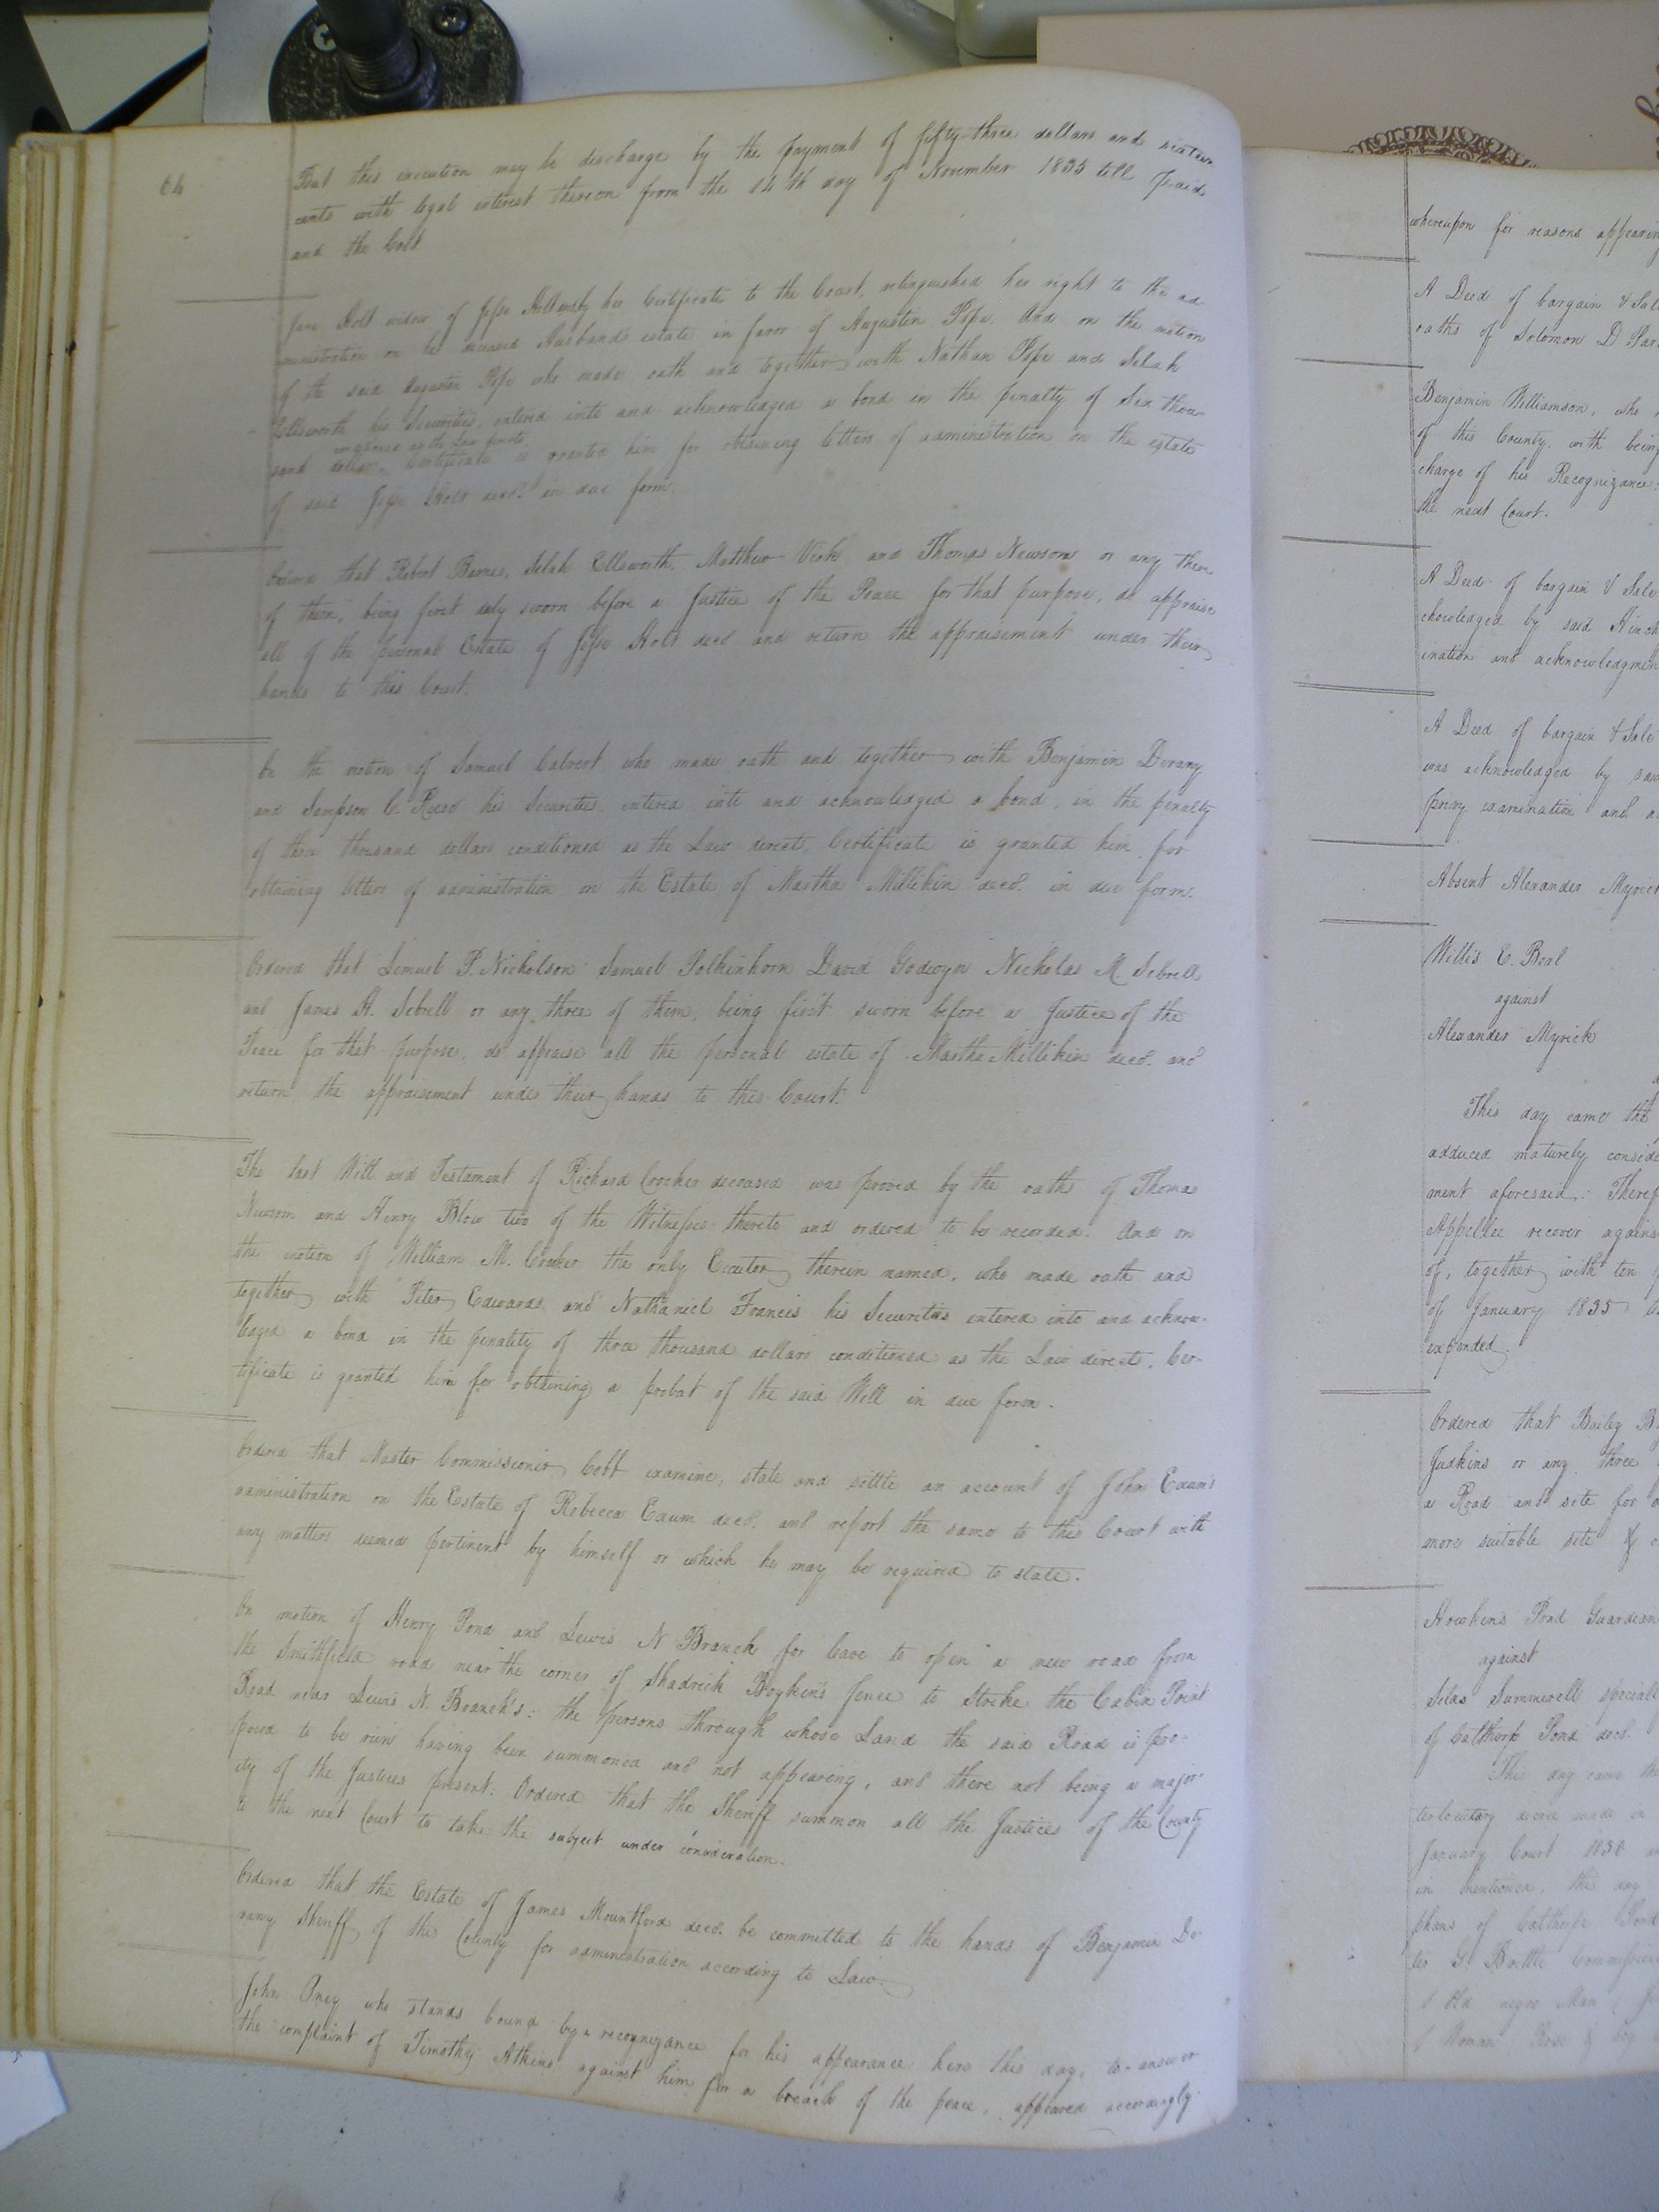 64
But this execution may be discharge by the payment of fifty-three dollars and sixteen
cents with legal interest thereon from the 14th day of November 1834 till paid
and the Cost
Jane Holt widow of Jesse Holt by her Certificate to the Court, relinquished her right to the ad
ministration on her deceased Husbands estate in favor of Augustin Pope. And on the motion
of the said Augustin Pope who made oath and together with Nathan Pope and Selah
Ellsworth his Securities, entered into and acknowledged a bond in the penalty of Six thou
conditioned as the Law directs,
sand dollars Certificate is granted him for obtaining letters of administration on the estate
of said Jesse Holt decd. in due form.
Ordered that Robert Barnes, Selah Ellsworth, Matthew Vick and Thomas Newsom or any three
of them, being first duly sworn before a Justice of the Peace for that purpose, do appraise
all of the personal Estate of Jesse Holt decd and return the appraisement under their
hands to this Court.
On the motion of Samuel Calvert who made oath and together with Benjamin Devany
and Sampson C. Reese his Securities, entered into and acknowledged a bond, in the penalty
of three thousand dollars conditioned as the Law directs, Certificate is granted him for
obtaining letters of administration on the Estate of Martha Millikin decd. in due form.
Ordered that Lemuel P. Nicholson Samuel Polkinhorn David Godwyn Nicholas M Sebrell
and James H. Sebrell or any three of them, being first sworn before a Justice of the
Peace for that purpose, do appraise all the personal estate of Martha Millikin decd. and
return the appraisement under their hands to this Court.
The last Will and Testament of Richard Crocker deceased was proved by the oaths of Thomas
Newsom and Henry Blow two of the Witnesses thereto and ordered to be recorded. And on
the motion of William M. Crocker the only Executor therein named, who made oath and
together with Peter Edwards and Nathaniel Francis his Securities entered into and acknow-
ledged a bond in the penality of three thousand dollars conditioned as the Law directs, Cer-
tificate is granted him for obtaining a probat of the said Will in due form.
Ordered that Master Commissioner Cobb examine, state and settle an account of John Exum's
administration on the Estate of Rebecca Exum decd. and report the same to this Court with
any matters deemed pertinent by himself or which he may be required to state.
On motion of Henry Pond and Lewis N Branch for leave to open a new road from
the Smithfield road near the corner of Shadrick Boykin's fence to Strike the Cabin Point
Road near Lewis N. Branch's: the persons through whose Land the said Road is pro-
posed to be run having been summoned and not appearing, and there not being a major-
ity of the Justices present. Ordered that the Sheriff summon all the Justices of the County
to the next Court to take the subject under consideration.
Ordered that the Estate of James Mountford decd. be committed to the hands of Benjamin De-
vany Sheriff of this County for administration according to Law.
John Oney who stands bound by a recognizance for his appearance here this day, to answer
the complaint of Timothy Atkins against him for a breach of the peace, appeared accordingly
whereupon for reasons appearing
A Deed of bargain & Sale
oaths of Solomon D
Benjamin Williamson, who
of this County with being
charge of his Recognizance
the next Court.
A Deed of bargain & Sale
knowledged by said
ination and acknowledgmen
A Deed of bargain & Sale
was acknowledged by said
privy examination and
Absent Alexander Myrick
Willis E. Beal
against
Alexander Myrick
This day came the
adduced maturely conside
ment aforesaid: Theref
Appellee recover agains
of, together with ten
of January 1835
expended.
Ordered that Bailey B
Judkins or any three
a Road and site for
more suitable site &
Howkins Pond Guardian
against
Silas Summerell speciall
of Calthorp Pond decd.
This day came the
terlocutory decree made in
January Court
in mentioned, this day
phans of Calthorpe Pond
ter G Brittle Commissione
1 Old negro Man
1 Woman Rose & boy